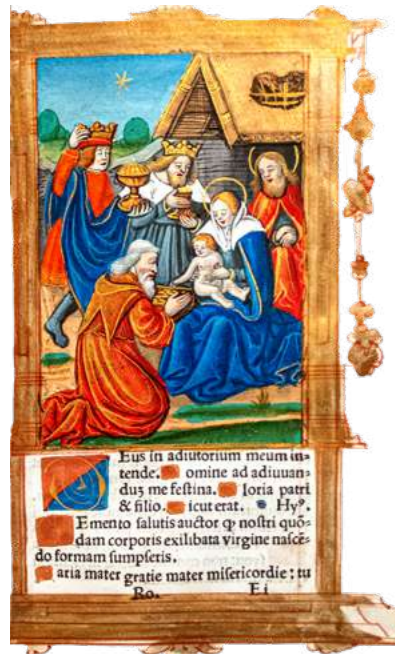 Eus in adiutorium meum in-
tende. omine ad adiuuan-
duʒ me festina. loria patri
& filio. icut erat. Hyꝰ.
Emento salutis auctor qꝫ nostri quō-
dam corporis exilibata virgine nascē-
do formam sumpseris.
aria mater gratie mater misericordie : tu
Ro. E i